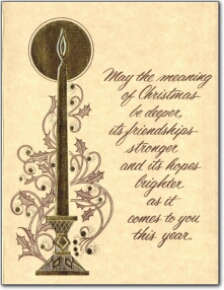 May the meaning
of Christmas
be deeper,
its friendships
stronger
and its hopes
brighter
as it
comes to you
this year.